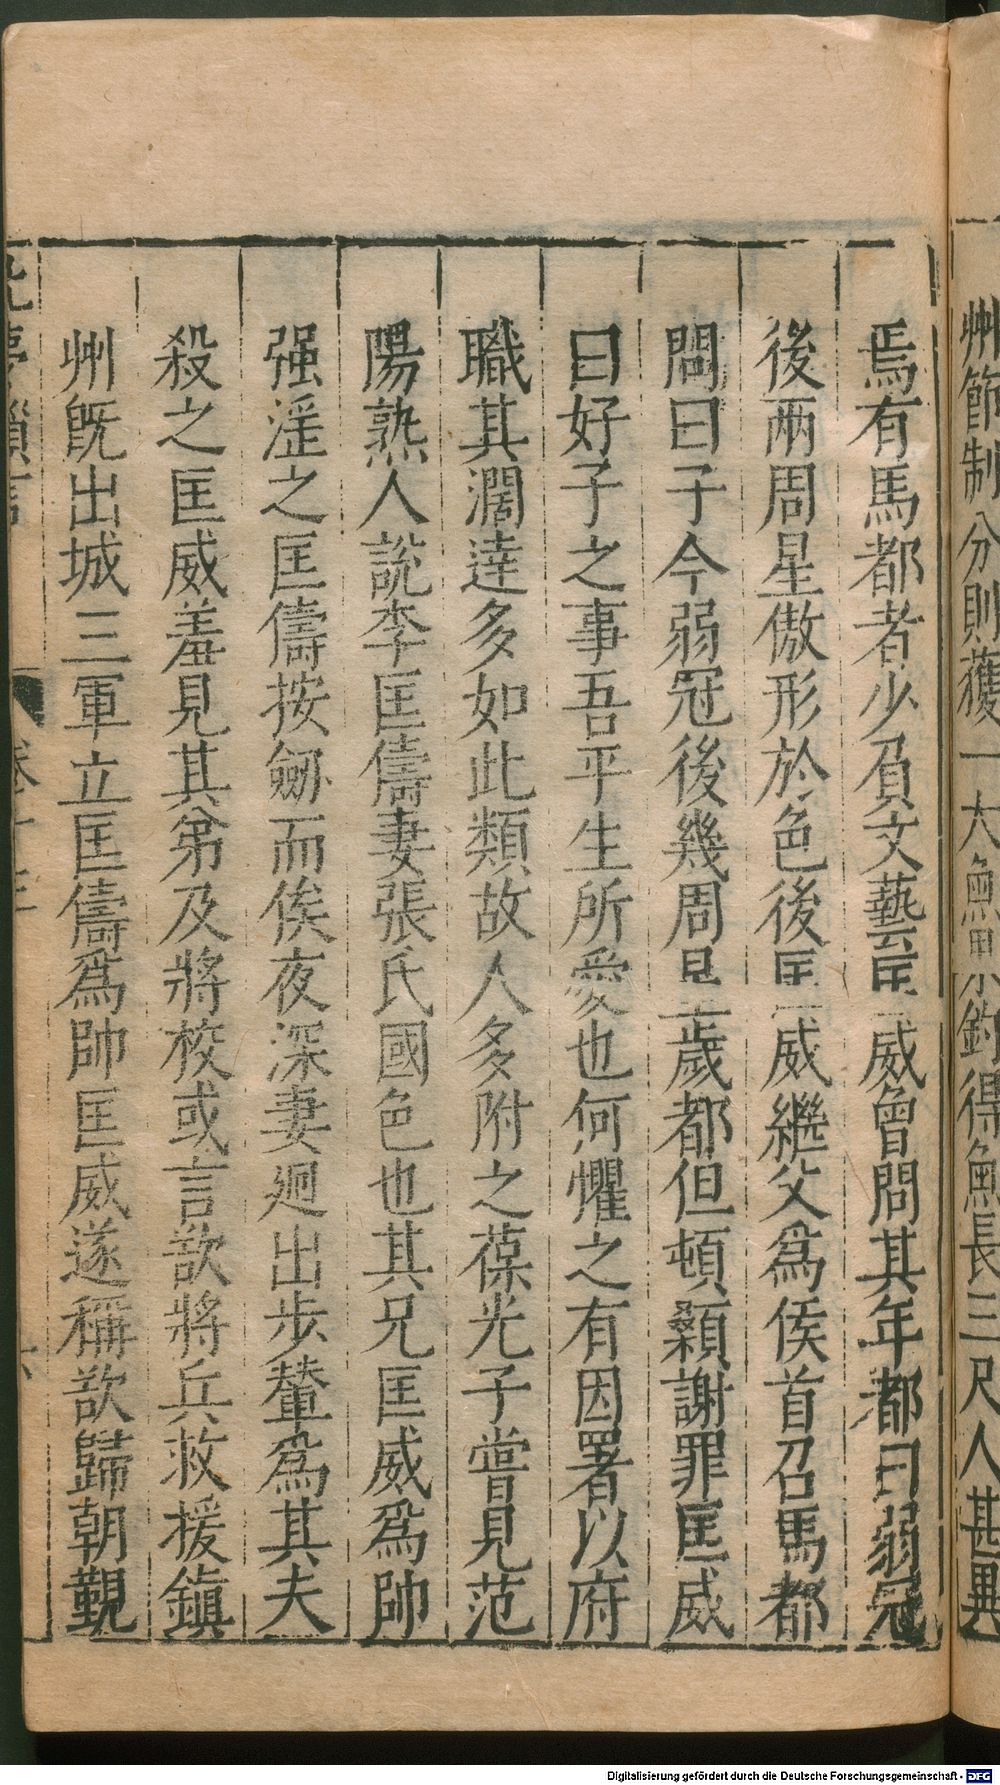 州節制分則獲一大魚果釣得魚長三尺人甚異
焉有馬都者少負文藝匡威曾問其年都曰弱冠
後兩周星傲形於色後匡威繼父爲侯首召馬都
問曰子今弱冠後幾周星歲都但頓顙謝罪匡威
曰好子之事吾平生所愛也何懼之有因署以府
職其濶達多如此類故人多附之葆光子嘗見范
陽熟人說李匡儔妻張氏國色也其兄匡威爲帥
强淫之匡儔按劔而俟夜深妻廻出步輦爲其夫
殺之匡威羞見其弟及將校或言欲將兵救援鎮
州旣出城三軍立匡儔爲帥匡威遂稱欲歸朝覲
北夢瑣言
卷十三
六
Digitalisierung gefördert durch die Deutsche Forschungsgemeinschaft - DFG